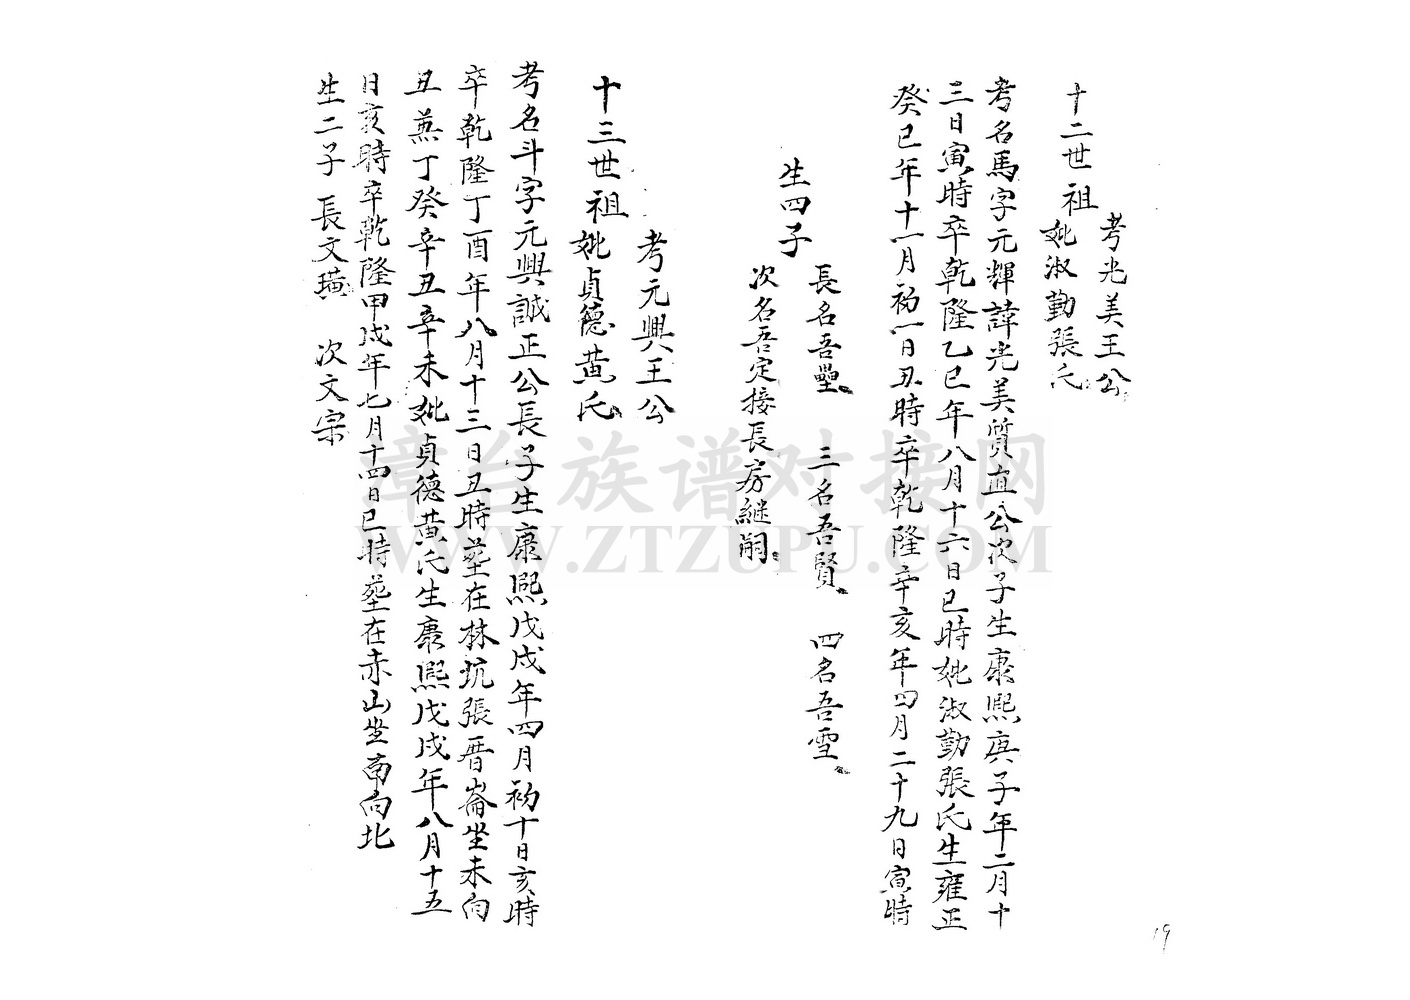 十二世祖
考光美王公
妣淑勤張氏
考名馬字元輝諱光美質直公次子生康熙庚子年二月十
三日寅時卒乾隆乙巳年八月十六日巳時妣淑勤張氏生雍正
癸巳年十一月初一日丑時卒乾隆辛亥年四月二十九日寅時
生四子
長名吾壘 三名吾賢 四名吾雪
次名吾定接長房継嗣
十三世祖
考元興王公
妣貞德黃氏
考名斗字元興誠正公長子生康熙戊戌年四月初十日亥時
卒乾隆丁酉年八月十三日丑時塟在林坑張厝崙坐未向
丑兼丁癸辛丑辛未妣貞德黃氏生康熙戊戌年八月十五
日亥時卒乾隆甲戌年七月十四日巳時塟在赤山坐南向北
生二子 長文璜 次文宗
19
漳台族谱对接网
WWW.ZTZUPU.COM